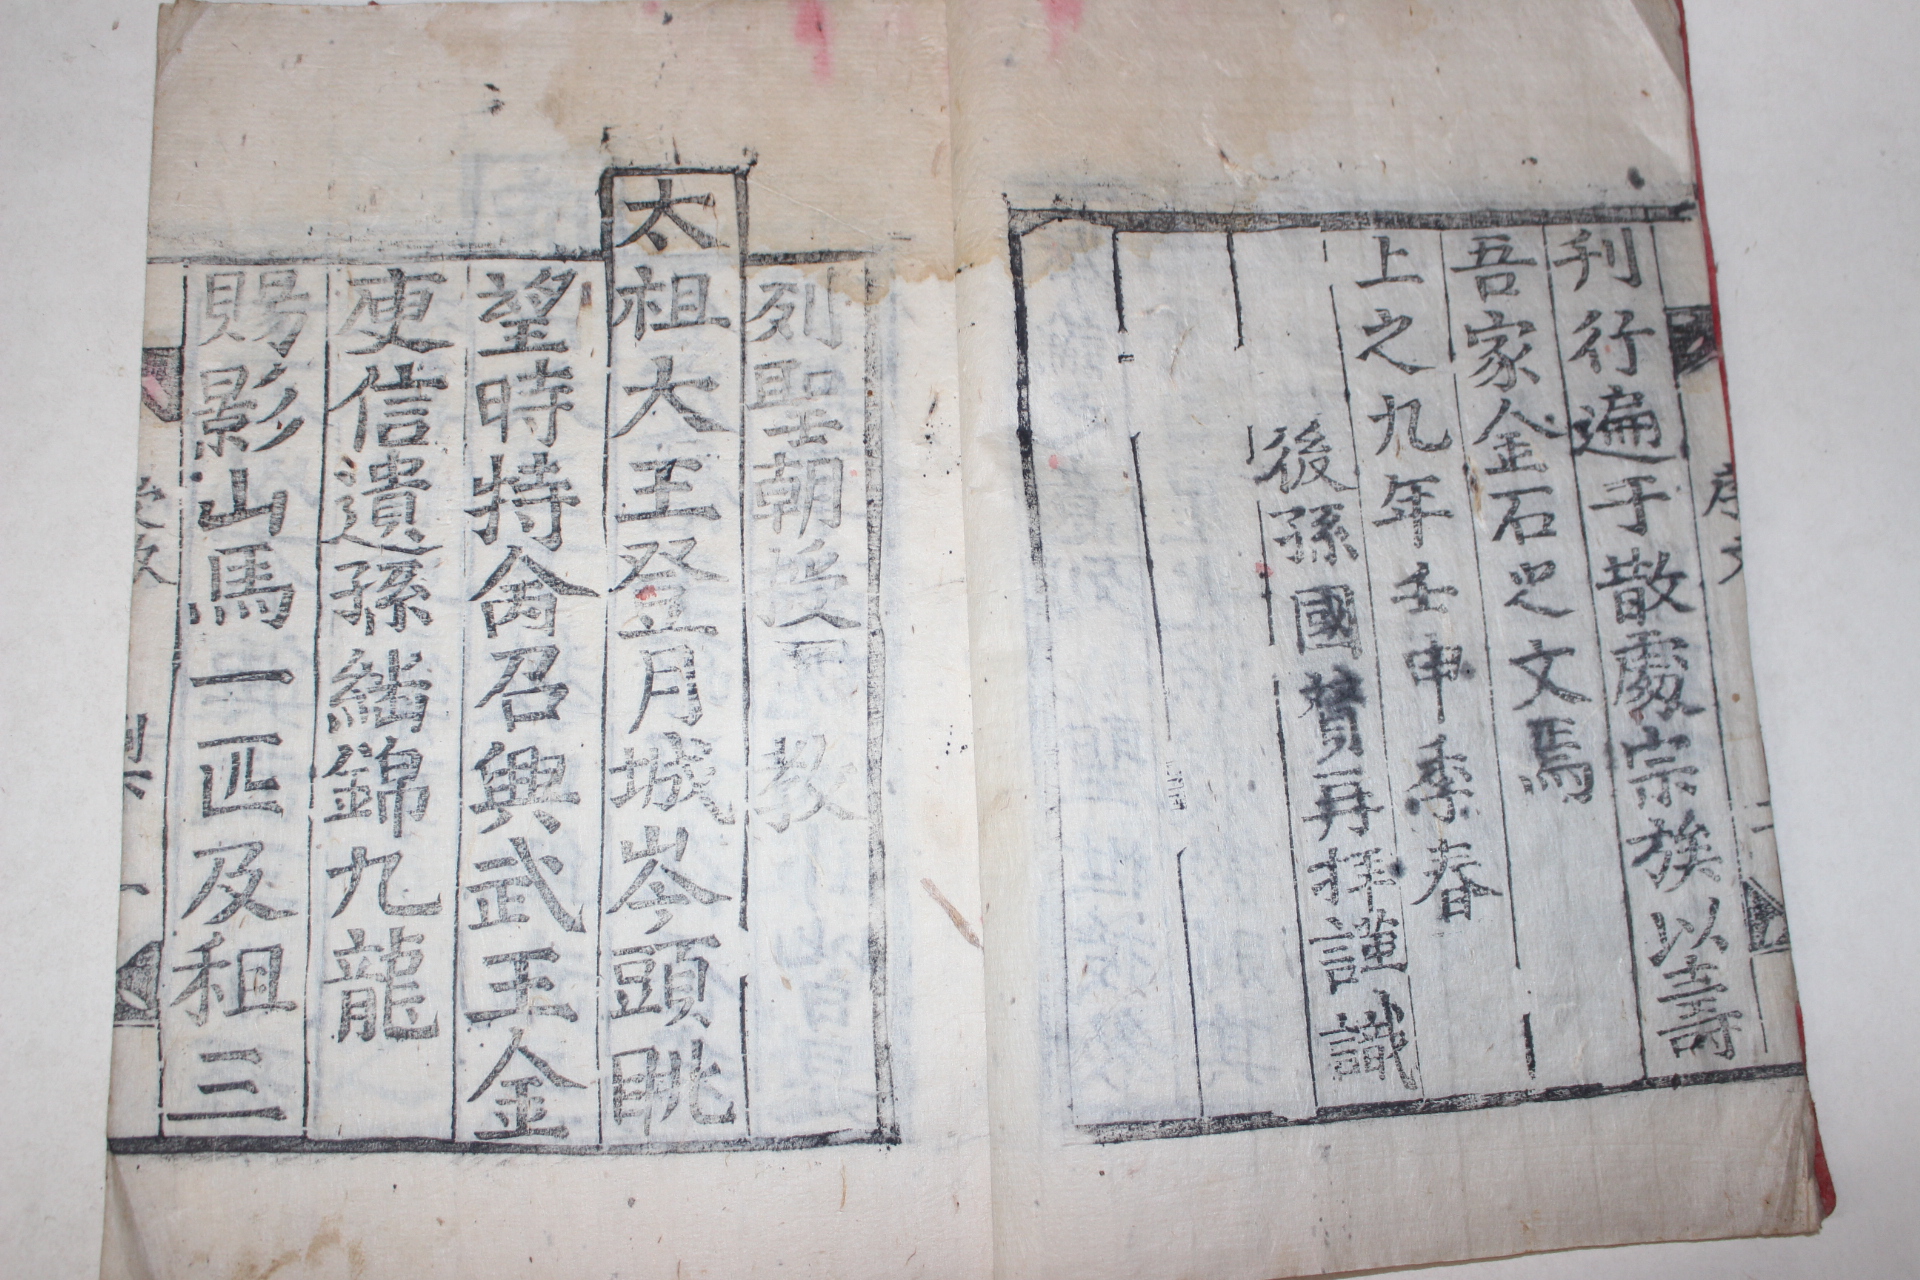 刊行遍于散處宗族以壽
吾家金石之文焉
上之九年壬申季春
後孫國賛再拜謹識
列聖朝授
教
太祖大王登月城岑頭眺
望時特命召興武王金
庾信遺孫緒錦九龍
賜影山馬一匹及租三